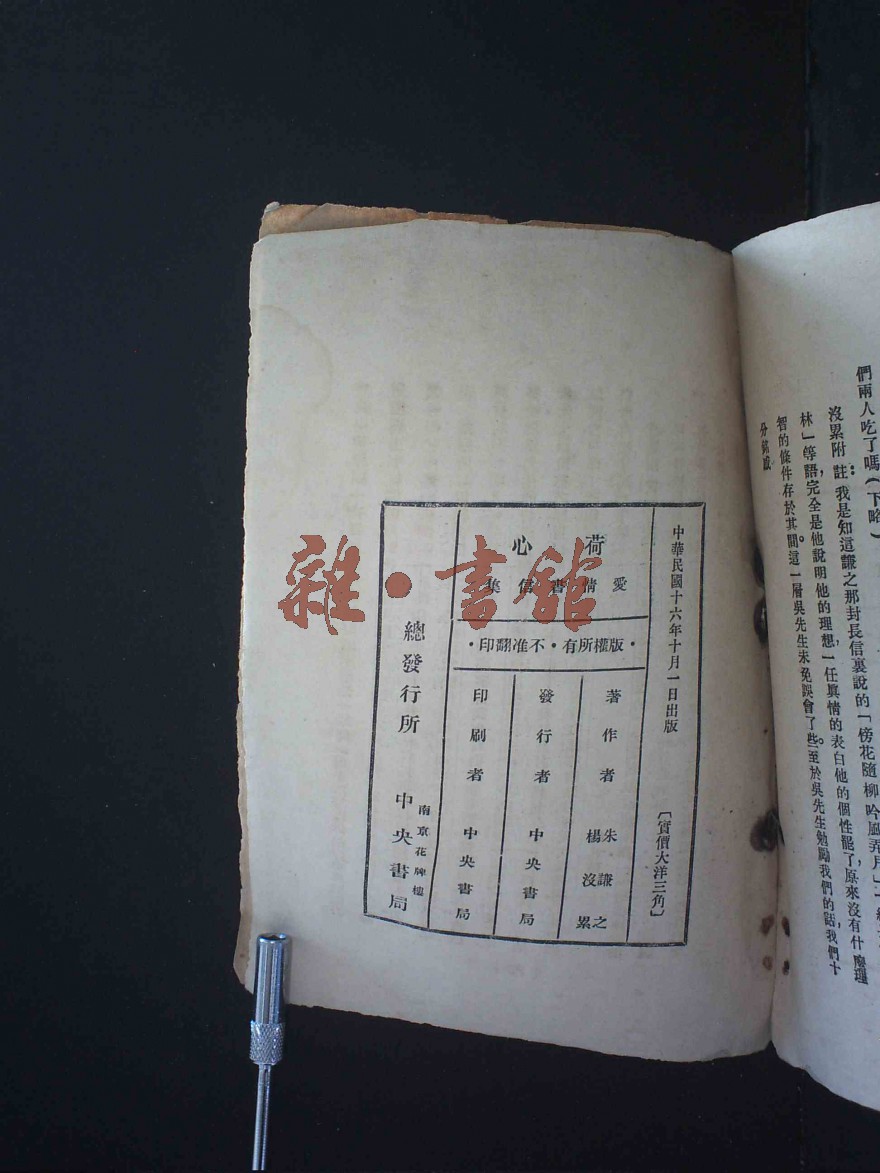 們兩人吃了嗎（下略）
沒累附註：我是知這謙之那封長信裏說的「傍花隨柳吟風弄月」
林」等語，完全是他說明他的理想，一任眞情的表白他的個性罷了，原來沒有什麼理
智的條件存於其間。這一層吳先生未免誤會了些。至於吳先生勉勵我們的話，我們十
分銘感
中華民國十六年十月一日出版
〔實價大洋三角〕
荷心
愛情書信集
·版權所有·不准翻印·
著作者 朱謙之 楊沒累
發行者 中央書局
印刷者 中央書局
總發行所 南京花牌樓 中央書局
雜·書館